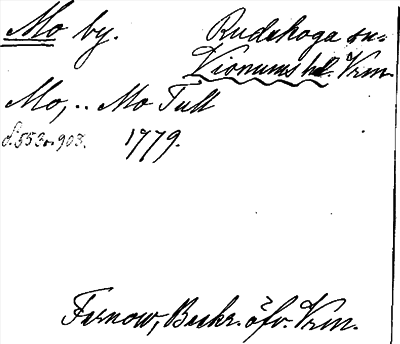 Mo by. Rudskoga sn.
Visnums hd. Vrm.
Mo, .. Mo Tull
s. 553 o. 903. 1779.
Fernow, Beskr. öfv. Vrm.